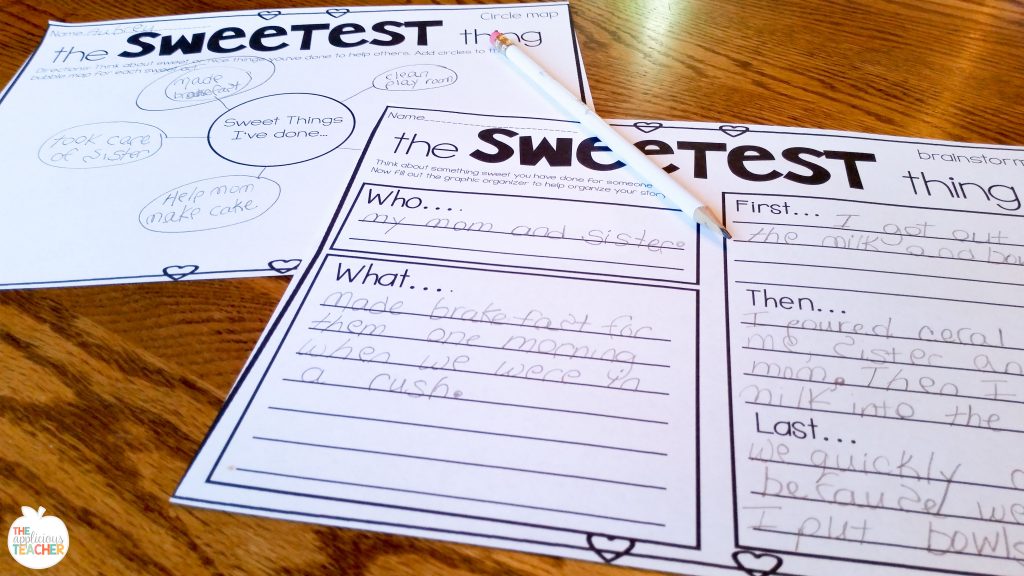 Name
Circle map
the SWEETEST thing
Directions: Think about sweet or nice things you've done to help others. Add circles to the
bubble map for each sweet
made
brakefact
clean
play room
Sweet Things
I've done...
took care
of Sister
Help mom
make cake
Name
brainstorm
the SWEETEST thing
Think about something sweet you have done for someone.
Now fill out the graphic organizer to help organize your story
Who....
my mom and sister.
What....
made brakefact for
them one morning
when we were in
a rush.
First... I got out
the milk and bow
Then...
I poured ceral
me, Sister an
mom. Then I
milk into the
Last...
we quickly
because we
I put bowls
THE
applicious
TEACHER